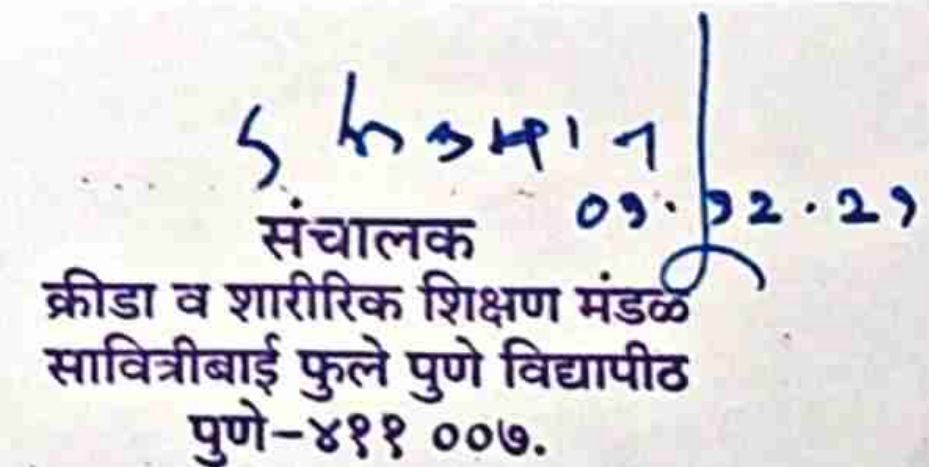 ०१.१२.२१
संचालक
क्रीडा व शारीरिक शिक्षण मंडळ
सावित्रीबाई फुले पुणे विद्यापीठ
पुणे–४११ ००७.